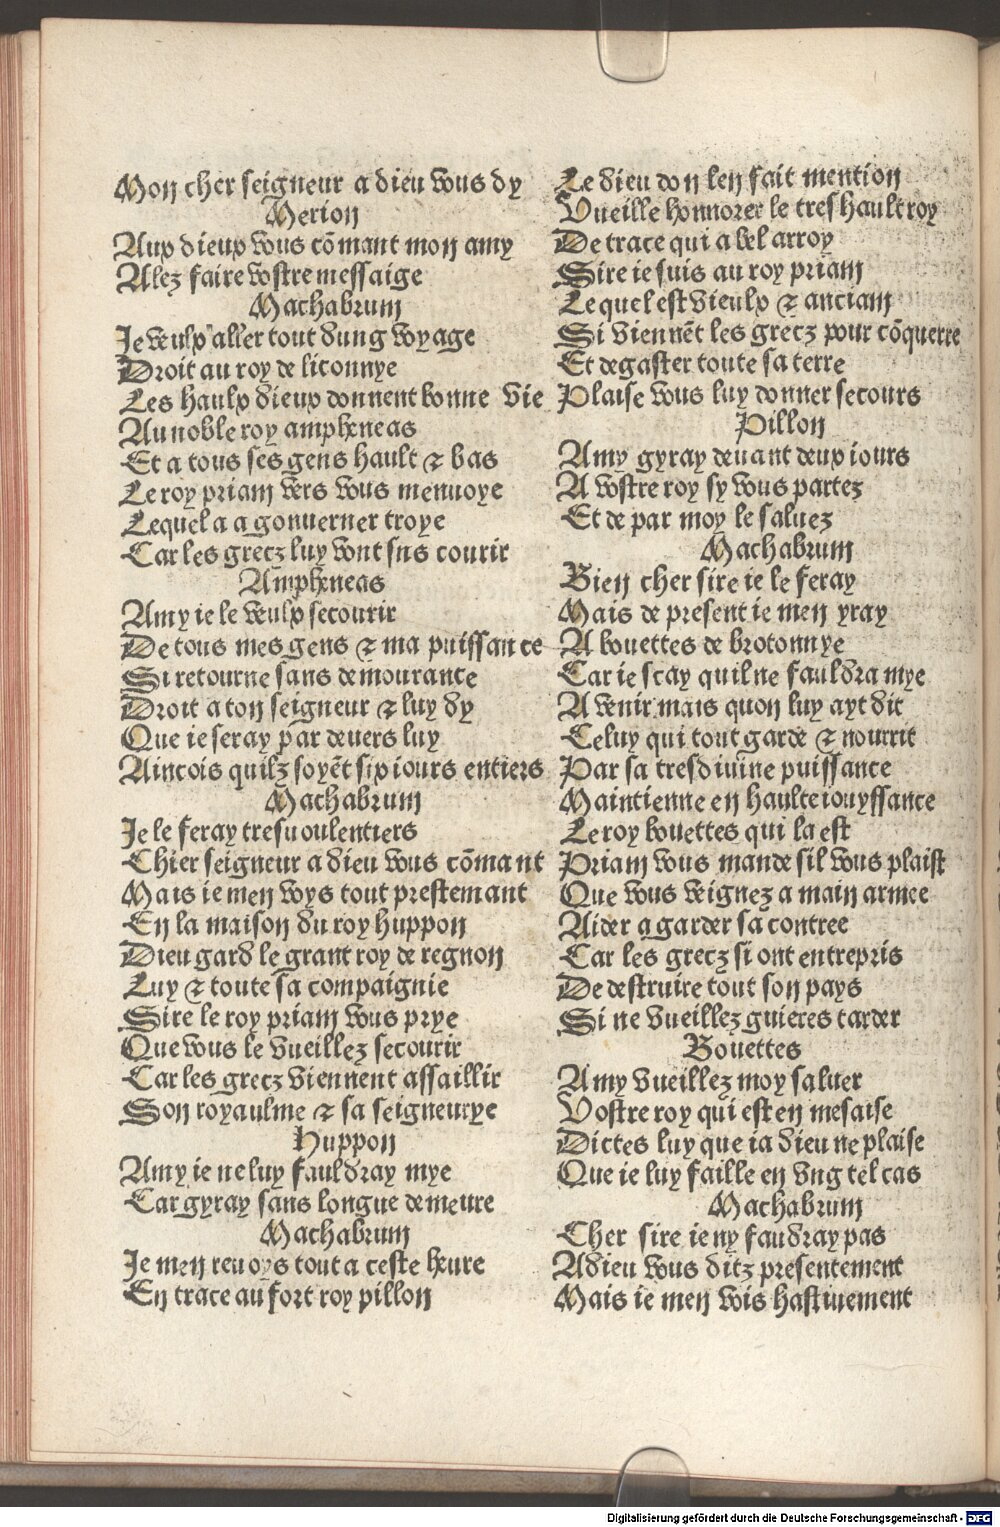 Mon cher seigneur a dieu vous dy
Merion
Aux dieux vous cõmant mon amy
Alez faire vostre messaige
Machabrum
Je veulx aller tout dung voyage
Droit au roy de liconnye
Les haulx dieux donnent bonne vie
Au noble roy ampheneas
Et a tous ses gens hault ⁊ bas
Le roy priam vers vous menuoye
Lequel a a gouuerner troye
Car les grecz luy vont sus courir
Ampheneas
Amy ie le veulx secourir
De tous mes gens ⁊ ma puissance
Si retourne sans demourance
Droit a ton seigneur ⁊ luy dy
Que ie seray par deuers luy
Aincois quilz soyẽt six iours entiers
Machabrum
Je le feray tresuoulentiers
Chier seigneur a dieu vous cõmant
Mais ie men voys tout prestemant
En la maison du roy huppon
Dieu gard le grant roy de regnon
Luy ⁊ toute sa compaignie
Sire le roy priam vous prye
Que vous le vueillez secourir
Car les grecz viennent assaillir
Son royaulme ⁊ sa seigneurye
Huppon
Amy ie ne luy fauldray mye
Car gyray sans longue demeure
Machabrum
Je men reuoys tout a ceste heure
En trace au fort roy pillon
Le dieu don len fait mention
Vueille honnorer le tres hault roy
De trace qui a bel arroy
Sire ie suis au roy priam
Lequel est vieulx ⁊ anciam
Si viennẽt les grecz pour cõquerre
Et degaster toute sa terre
Plaise vous luy donner secours
Pillon
Amy gyray deuant deux iours
A vostre roy sy vous partez
Et de par moy le saluez
Machabrum
Bien cher sire ie le feray
Mais de present ie men yray
A bouettes de brotonnye
Car ie scay quil ne fauldra mye
A venir mais quon luy ayt dit
Celuy qui tout garde ⁊ nourrit
Par sa tresdiuine puissance
Maintienne en haulte iouyssance
Le roy bouettes qui la est
Priam vous mande sil vous plaist
Que vous veignez a main armee
Aider a garder sa contree
Car les grecz si ont entrepris
De destruire tout son pays
Si ne vueillez guieres tarder
Bouettes
Amy vueillez moy saluer
Vostre roy qui est en mesaise
Dictes luy que ia dieu ne plaise
Que ie luy faille en vng tel cas
Machabrum
Cher sire ie ny faudray pas
Adieu vous ditz presentement
Mais ie men vois hastiuement
Digitalisierung gefördert durch die Deutsche Forschungsgemeinschaft - DFG